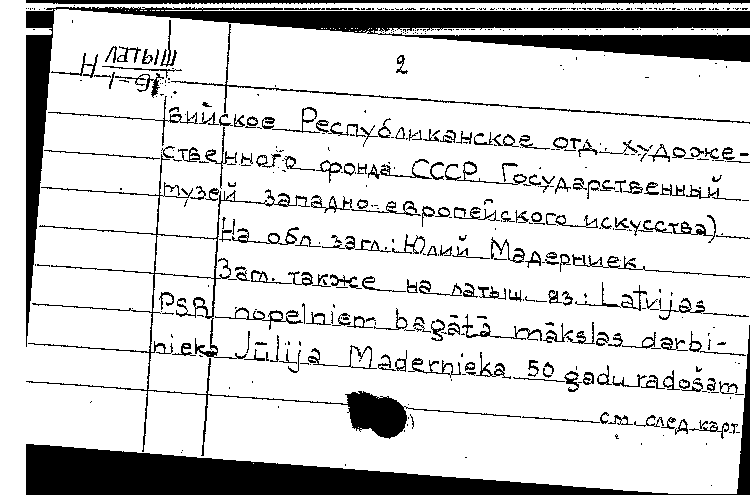 Н латыш
1-91
2
вийское Республиканское отд. художе-
ственного фонда СССР. Государственный
музей западно-европейского искусства).
На обл. загл.: Юлий Мадерниек.
Заг. также на латыш. яз.: Latvijas
PSR nopelniem bagātā mākslas darbi-
nieka Jūlija Madernieka 50 gadu radošam
см. след. карт